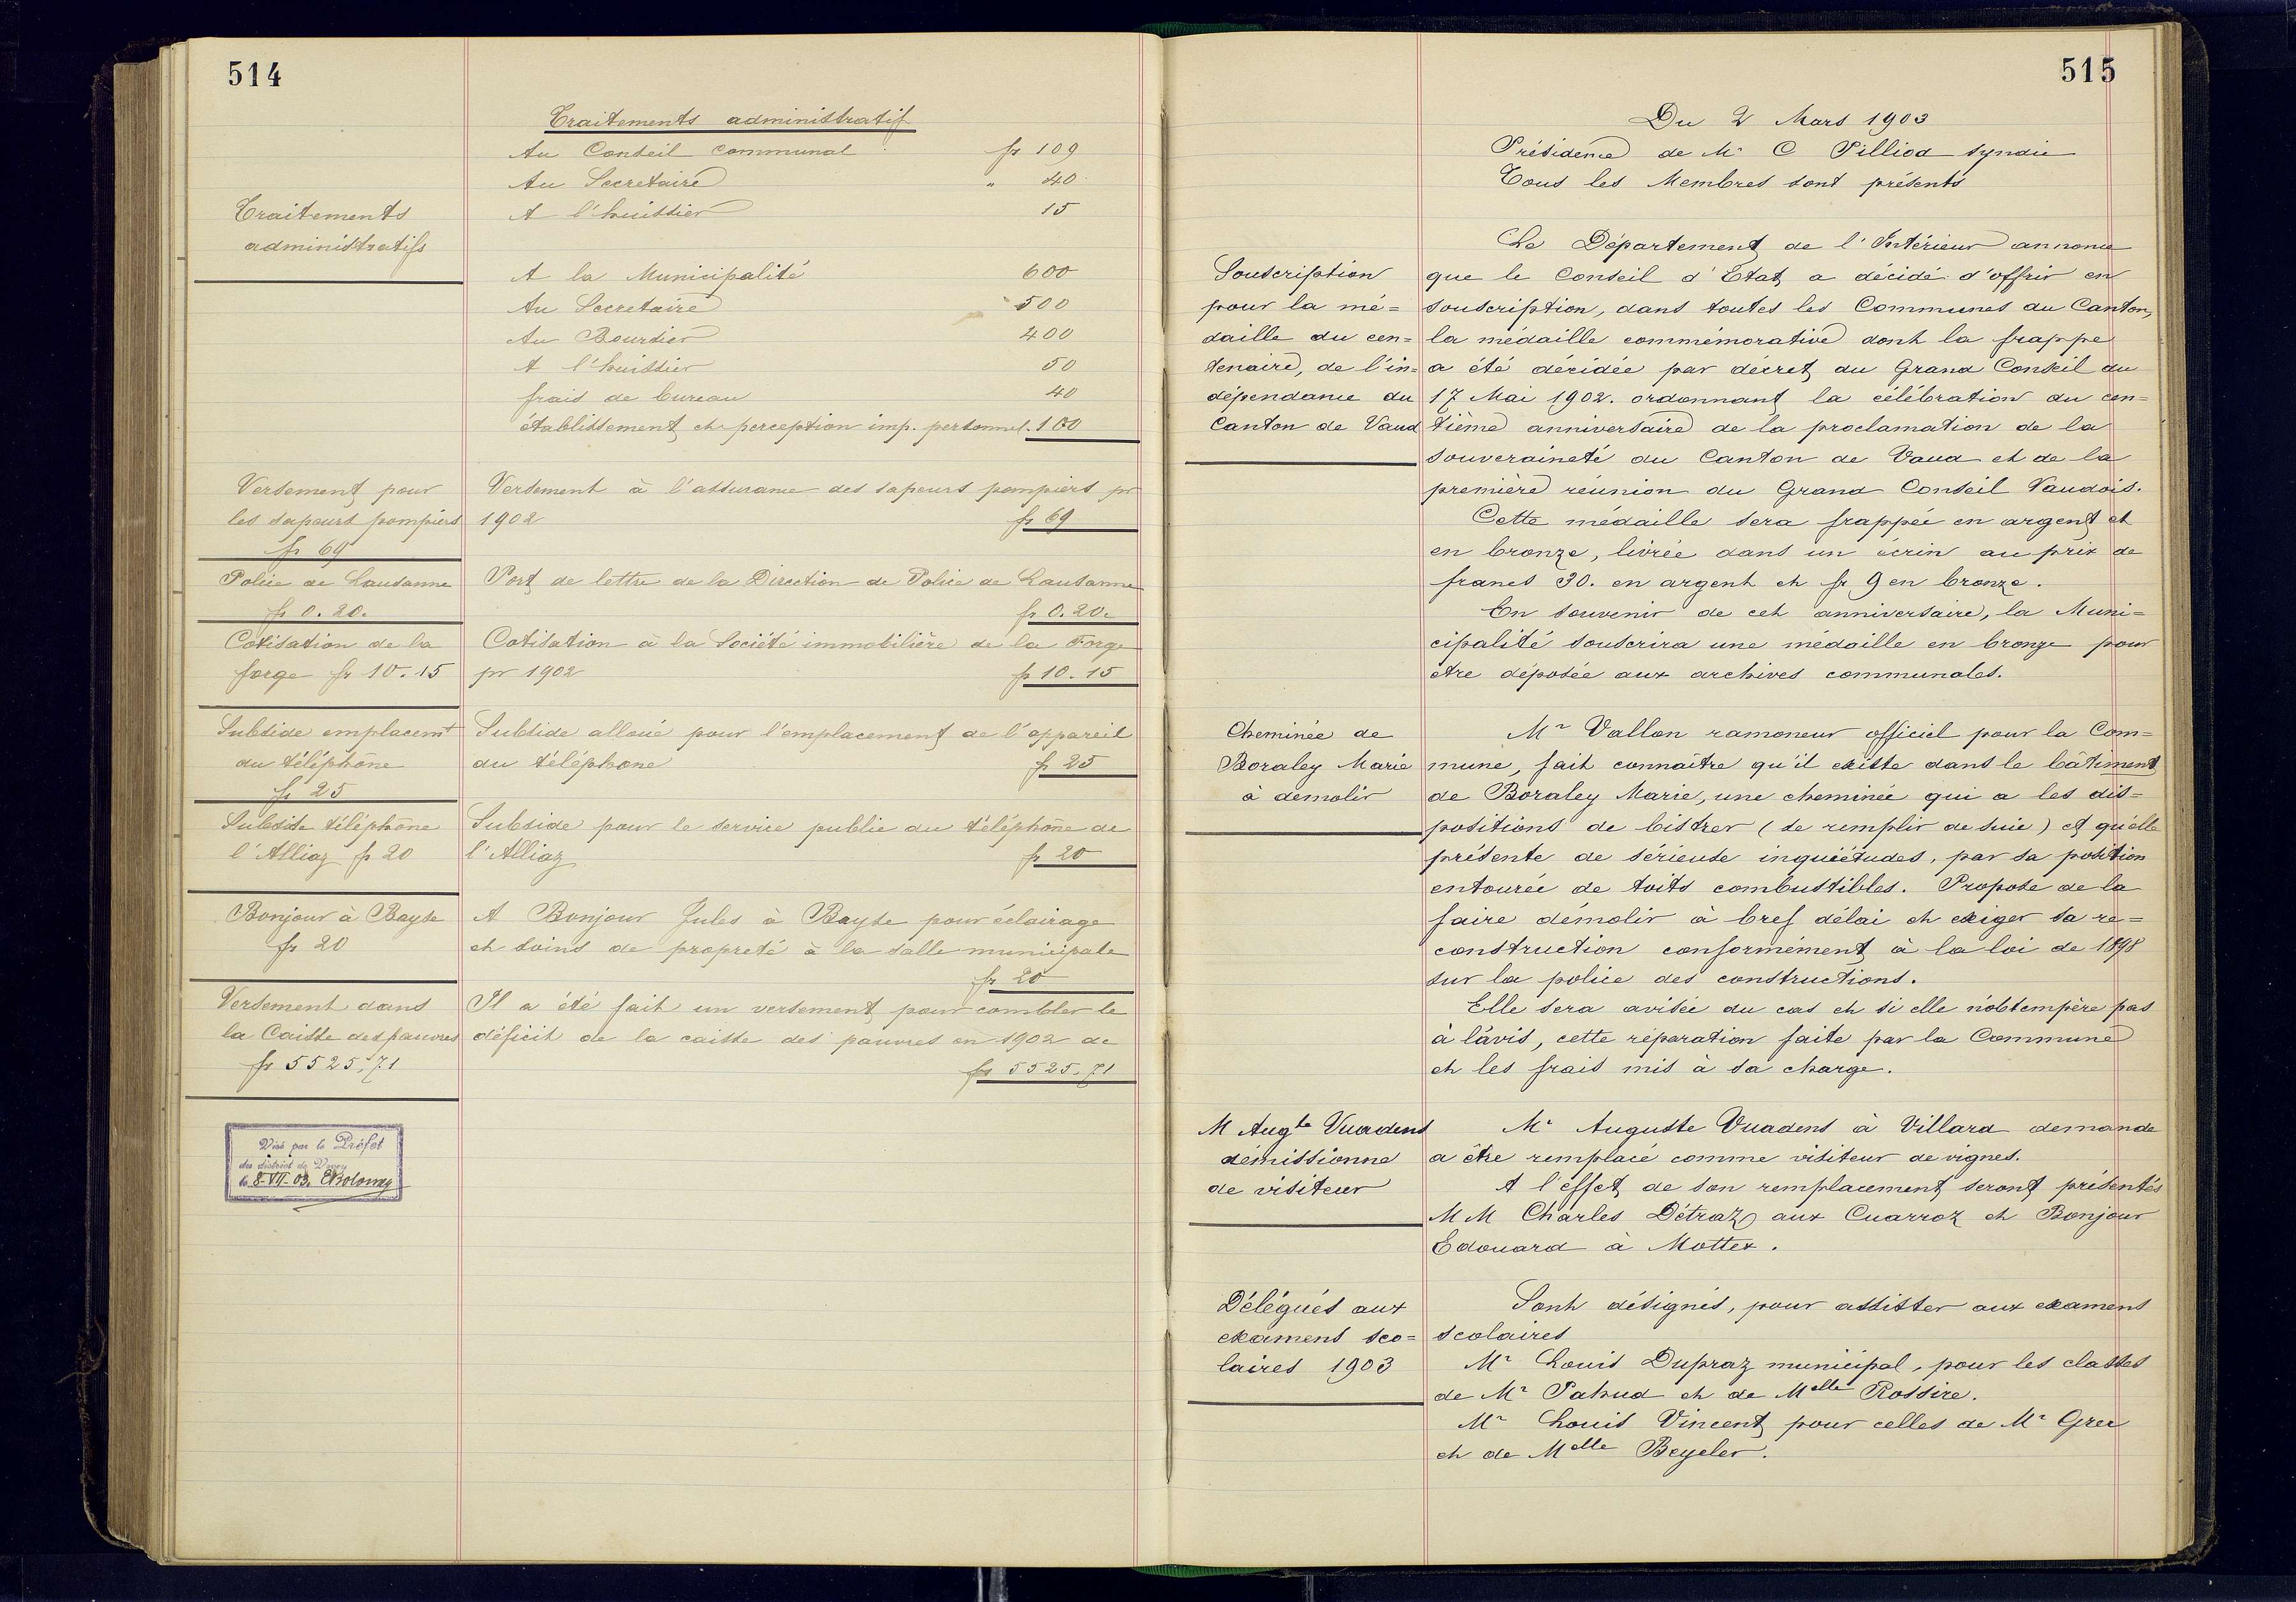 514
Traitements administratif
Au Conseil communal fr 109
Au Secretaire " 40
A l'huissier 15
Traitements
administratifs
A la Municipalité 600
Au Secretaire 500
Au Boursier 400
A l'huissier 50
frais de bureau 40
établissement et perception imp. personnel. 100
Versement pour
les sapeurs pompiers
fr 69
Versement à l'assurance des sapeurs pompiers pr
1902 fr 69
Police de Lausanne
fr 0.20.
Port de lettre de la Direction de Police de Lausanne
fr 0.20.
Cotisation de la
forge fr 10.15
Cotisation à la Société immobilière de la Forge
pr 1902 fr 10.15
Subside emplacemt
du téléphone
fr 25
Subside alloué pour l'emplacement de l'appareil
du téléphone fr 25
Subside téléphone
l'Alliaz fr 20
Subside pour le service public du téléphone de
l'Alliaz fr 20
Bonjour à Bayse
fr 20
A Bonjour Jules à Bayse pour éclairage
et soins de propreté à la salle municipale
fr 20
Versement dans
la Caisse des pauvres
fr 5525.71
Il a été fait un versement pour combler le
déficit de la caisse des pauvres en 1902 de
fr 5525.71
Visé par le Préfet
du district de Vevey
le 8-VII-03.
515
Du 2 Mars 1903
Présidence de Mr C Pilliod syndic
Tous les Membres sont présents
Souscription
pour la mé=
daille du cen=
tenaire, de l'in=
dépendance du
Canton de Vaud
Le Département de l'Intérieur annonce
que le Conseil d'Etat a décidé d'offrir en
souscription, dans toutes les Communes du Canton,
la médaille commémorative dont la frappe
a été décidée par décret du Grand Conseil du
17 Mai 1902. ordonnant la célébration du cen=
tième anniversaire de la proclamation de la
souveraineté du Canton de Vaud et de la
première réunion du Grand Conseil Vaudois.
Cette médaille sera frappée en argent et
en bronze, livrée dans un écrin au prix de
francs 30. en argent et fr 9 en bronze.
En souvenir de cet anniversaire, la Muni=
cipalité souscrira une médaille en bronze pour
être déposée aux archives communales.
Cheminée de
Boraley Marie
à demolir
Mr Vallon ramoneur officiel pour la Com=
mune, fait connaître qu'il existe dans le bâtiment
de Boraley Marie, une cheminée qui a les dis=
positions de bistrer (se remplir de suie) et qu'elle
présente de sérieuse inquiétudes, par sa position
entourée de toits combustibles. Propose de la
faire démolir à bref délai et exiger sa re=
construction conformément à la loi de 1898
sur la police des constructions.
Elle sera avisée du cas et si elle n'obtempère pas
à l'avis, cette réparation faite par la Commune
et les frais mis à sa charge.
M Augte Vuadens
démissionne
de visiteur
Mr Auguste Vuadens à Villard demande
a être remplacé comme visiteur de vignes.
A l'effet de son remplacement seront présentés
MM Charles Détraz aux Cuarroz et Bonjour
Edouard à Mottex.
Délégués aux
examens sco=
laires 1903
Sont désignés, pour assister aux examens
scolaires
Mr Louis Dupraz municipal, pour les classes
de Mr Pahud et de Melle Rossire.
Mr Louis Vincent pour celles de Mr Grec
et de Melle Beyeler.